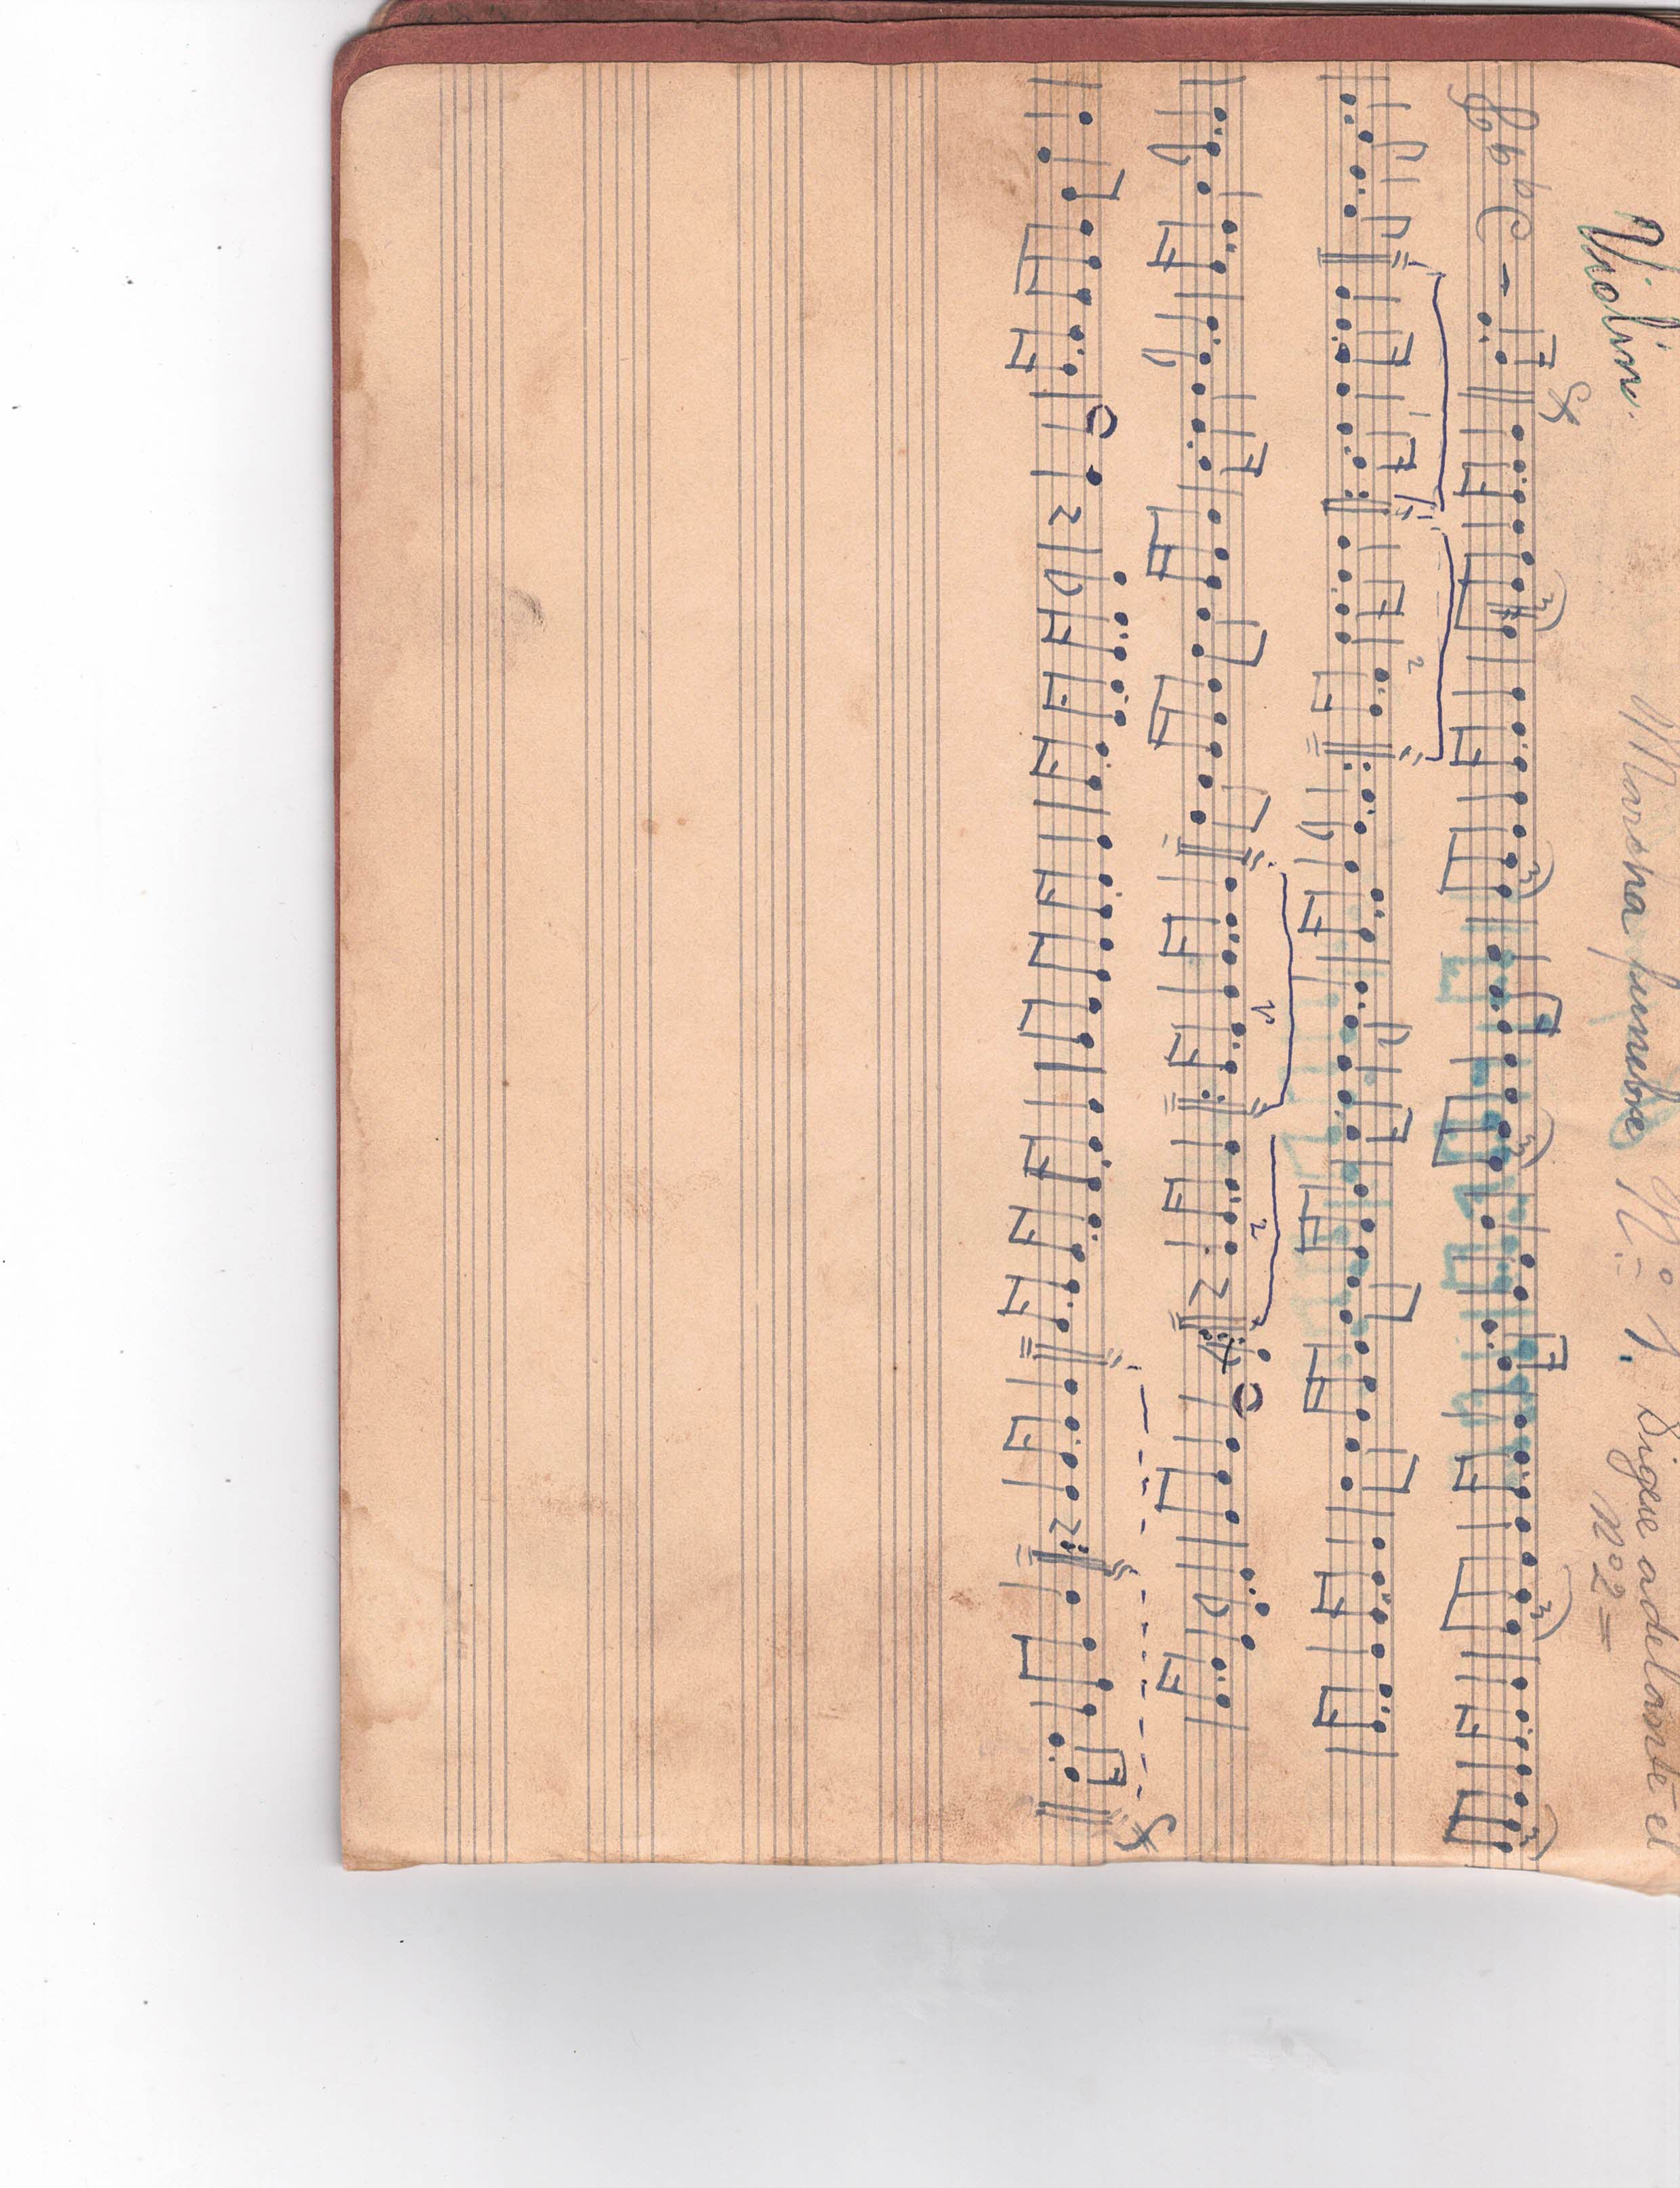 Violin. Marcha funebre Nº 1. Sigue adelante el
Nº 2 =
3 3 3 3 3
1 2
1 2